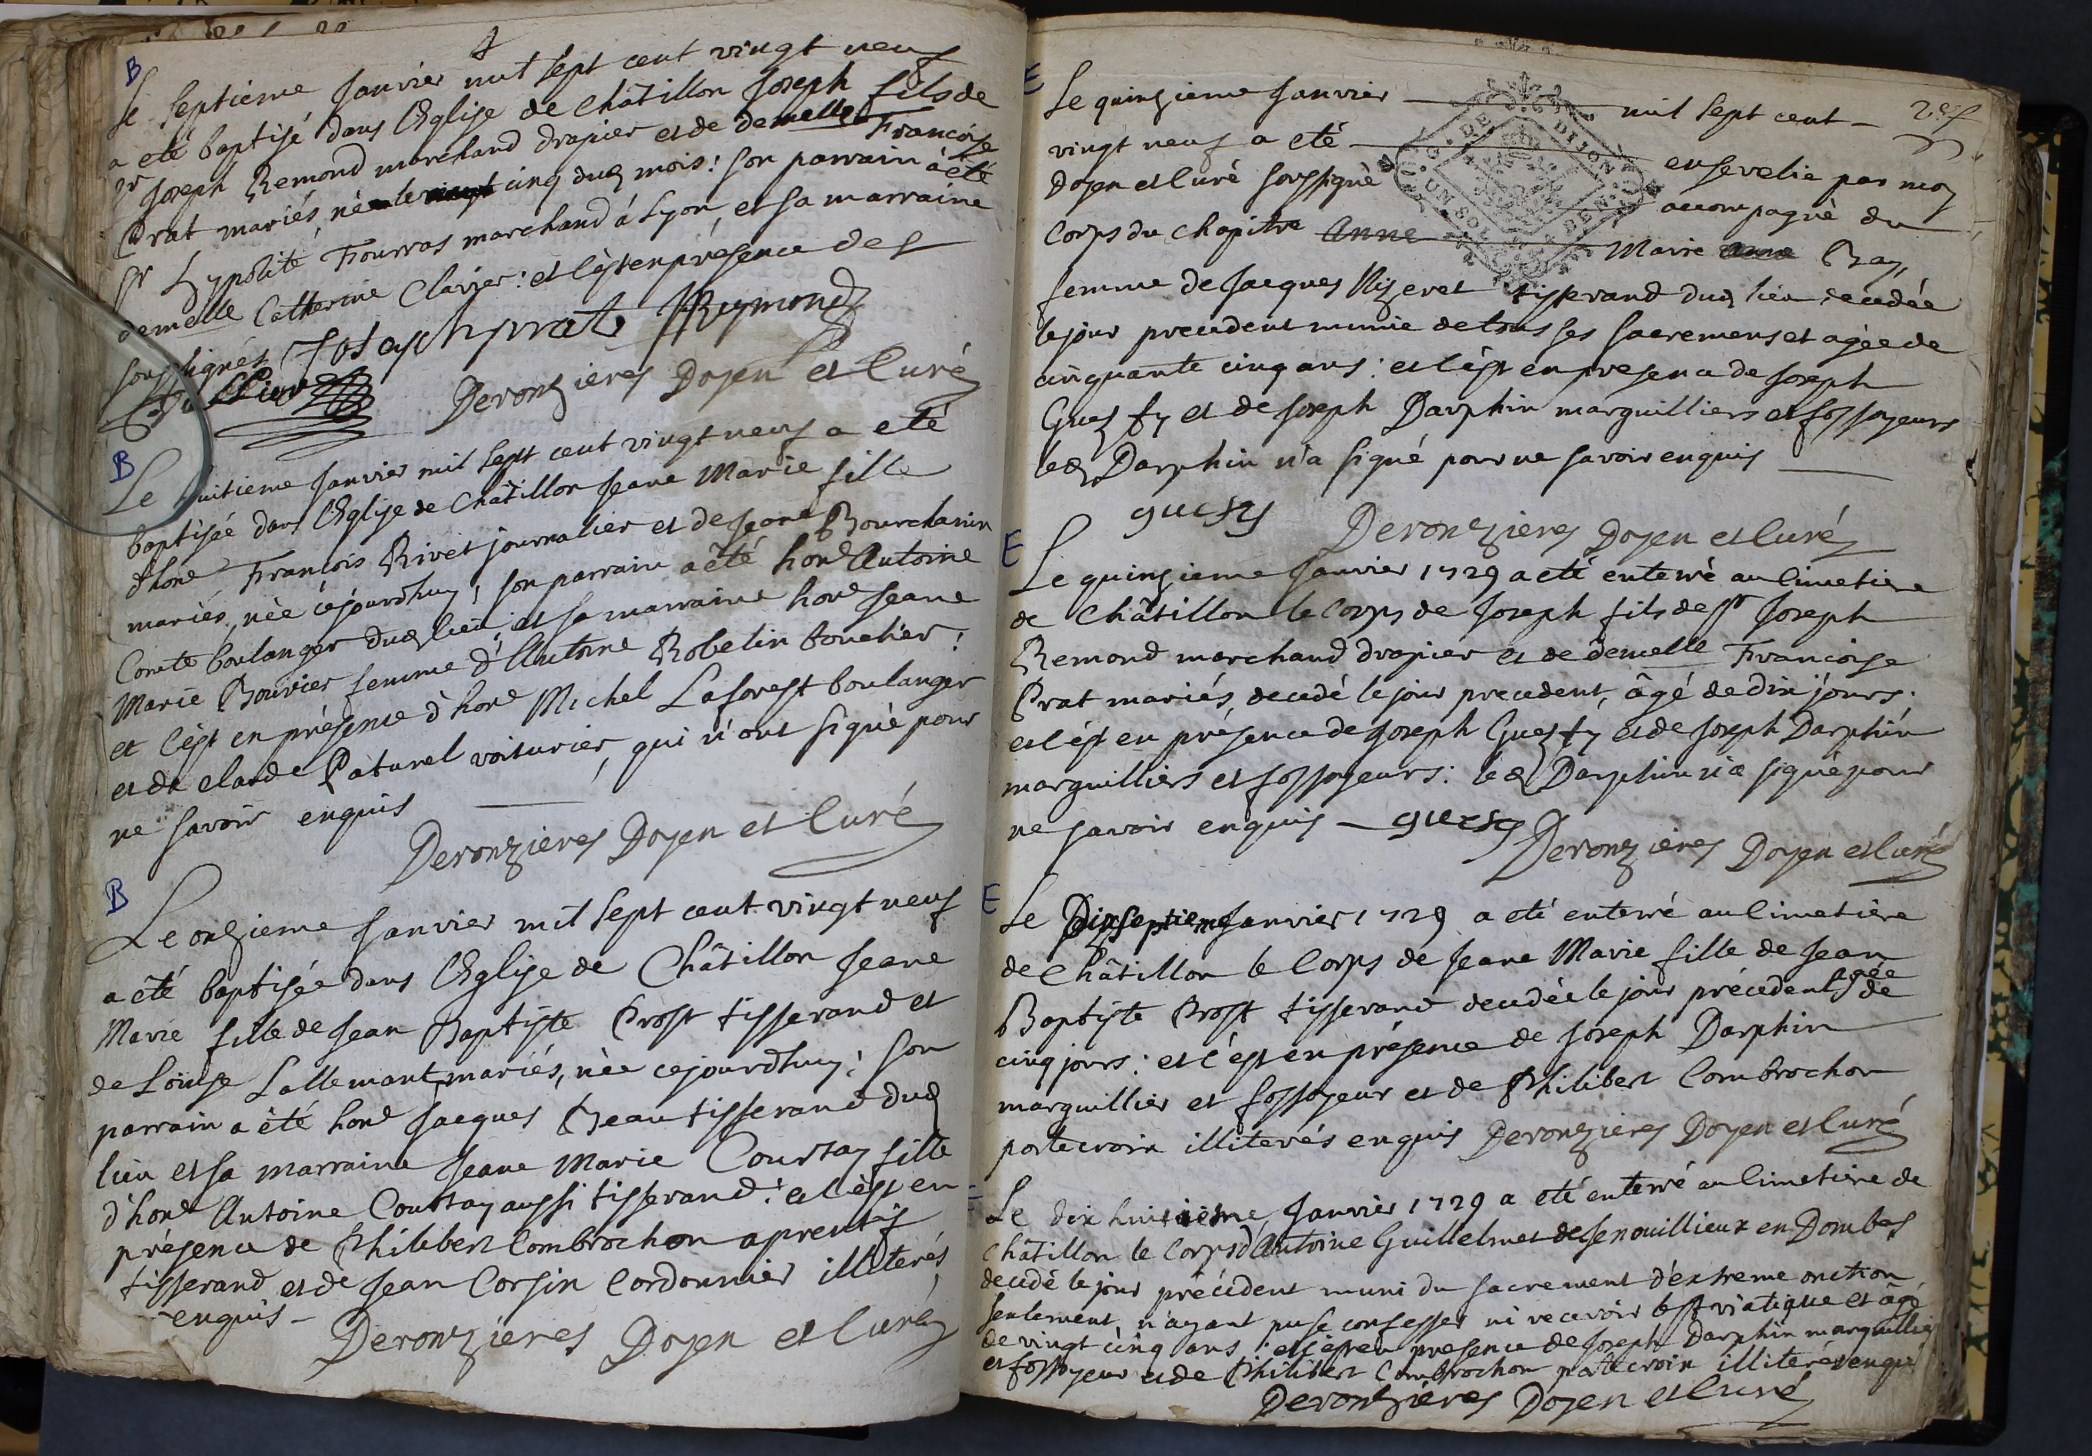 B
Le septieme Janvier mil sept cent vingt neuf
a eté baptisé dans l'Eglise de Châtillon Joseph fils de
Sr Joseph Remond marchand drapier et de demelle Francoise
Prat mariés, né le cinq dud mois: son parrain à été
Sr Hypolite Fourras marchand à Lyon, et sa marraine
demelle Catherine Clavier: et c'est en présence des
soussignés Joseph prat Reymond
Deronzieres Doyen et Curé
B
Le huitieme Janvier mil sept cent vingt neuf a eté
baptisée dans l'Eglise de Châtillon Jeane Marie fille
d'hone François Rivet journalier et de Jeane Bourchanin
mariés, née cejourdhuy; son parrain a été hone Antoine
Comte boulanger dud lieu, et sa marraine hone Jeane
Marie Bouvier femme d'Antoine Robelin boucher:
et c'est en présence d'hone Michel Laforest boulanger
et de claude Paturel voiturier, qui n'ont signé pour
ne savoir enquis
Deronzieres Doyen et Curé
B
Le onzieme Janvier mil sept cent vingt neuf
a été baptisée dans l'Eglise de Châtillon Jeane
Marie fille de Jean Baptiste Prost tisserand et
de Louise Lallemant mariés, née cejourdhuy; son
parrain a été hone Jacques Beau tisserand dud
lieu et sa marraine Jeane Marie Courtay fille
d'hone Antoine Courtay aussi tisserand: et c'est en
présence de Philibert Combrochon aprentis
tisserand et de Jean Corsin Cordonnier illiterés
enquis -
Deronzieres Doyen et Curé
E
Le quinzieme Janvier mil sept cent -
vingt neuf a eté ensevelie par moy
Doyen et Curé soussigné accompagné du
Corps du Chapitre Anne Marie Anne Ray,
femme de Jacques Nizeret tisserand dud lieu decedée
le jour precedent munie de tous ses sacremens et agée de
cinquante cinq ans: et c'est en presence de Joseph
Guesty et de Joseph Darphin marguilliers et fossoyeurs
led Darphin n'a signé pour ne savoir enquis
guesty Deronzieres Doyen et Curé
G. DE DIJON
UN SOL
E
Le quinzieme Janvier 1729 a eté enterré au Cimetiere
de Châtillon le Corps de Joseph fils de Sr Joseph
Remond marchand drapier et de demelle Francoise
Prat mariés, decedé le jour precedent, âgé de dix jours:
et c'est en présence de Joseph Guesty et de Joseph Darphin
marguilliers et fossoyeurs: led Darphin n'a signé pour
ne savoir enquis - guesty Deronzieres Doyen et Curé
E
Le Dixseptieme Janvier 1729 a eté enterré au Cimetiere
de Châtillon le Corps de Jeane Marie fille de Jean
Baptiste Prost tisserand decedée le jour précedent agée de
cinq jours: et c'est en présence de Joseph Darphin
marguillier et fossoyeur et de Philibert Combrochon
portecroix illiterés enquis Deronzieres Doyen et Curé
E
Le dix huitieme Janvier 1729 a eté enterré au Cimetiere de
Châtillon le Corps d'Antoine Guillelmet de Senouillieux en Dombes
decedé le jour précédent muni du sacrement d'extreme onction
seulement, n'ayant pu se confesser ni recevoir le St viatique et agé
de vingt cinq ans: et c'est en presence de Joseph Darphin marguillier
et fossoyeur et de Philibert Combrochon portecroix illiterés enquis
Deronzieres Doyen et Curé